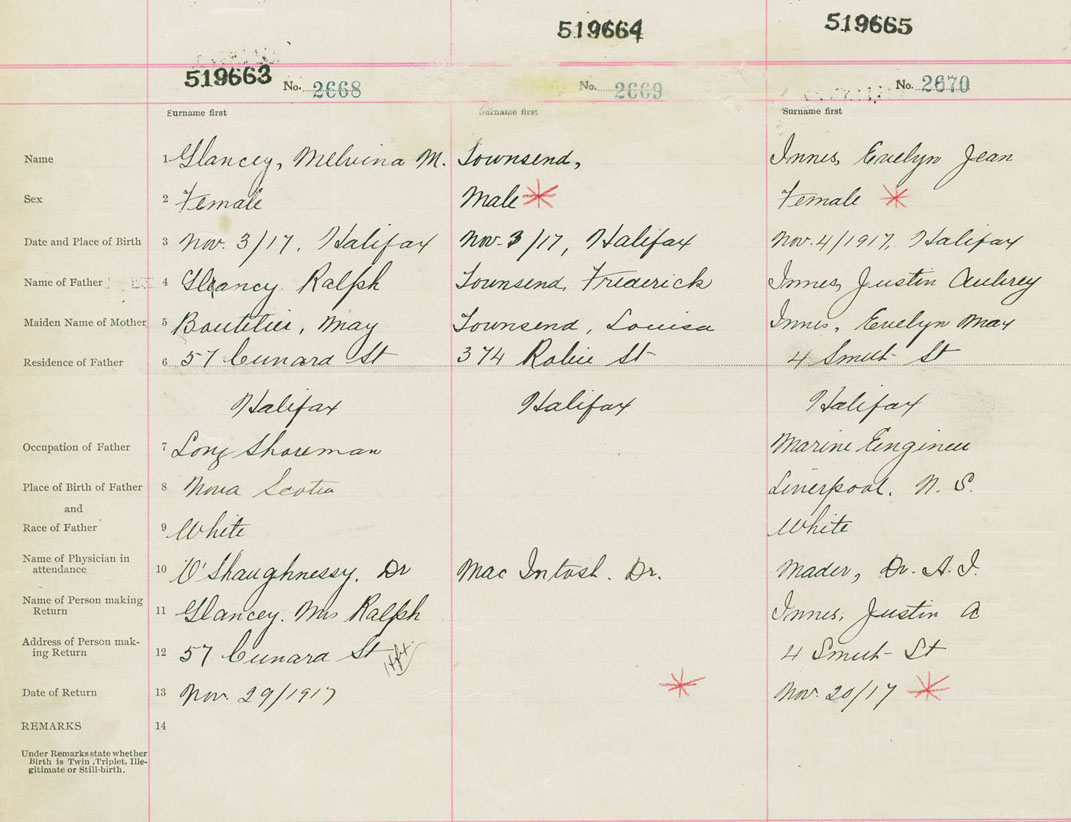 519663 519664 519665
No. 2668 No. 2669 No. 2670
Surname first Surname first Surname first
Name 1 Glancey, Melvina M. Townsend, Innes, Evelyn Jean
Sex 2 Female Male Female
Date and Place of Birth 3 Nov. 3/17, Halifax Nov. 3/17, Halifax Nov. 4/1917, Halifax
Name of Father 4 Glancy Ralph Townsend, Frederick Innes, Justin Aubrey
Maiden Name of Mother 5 Boutilier, May Townsend, Louisa Innis, Evelyn May
Residence of Father 6 57 Cunard St 374 Robie St 4 St
Halifax Halifax Halifax
Occupation of Father 7 Long Shoreman Marine Engineer
Place of Birth of Father 8 Nova Scotia Liverpool, N. S.
and
Race of Father 9 White White
Name of Physician in
attendance 10 O'Shaughnessy, Dr Mac Intosh. Dr. Mader, Dr. A. I.
Name of Person making
Return 11 Glancey. Mrs Ralph Innes, Justin A
Address of Person mak-
ing Return 12 57 Cunard St 4 St
Date of Return 13 Nov. 29/1917 Nov. 20/17
REMARKS 14
Under Remarks state whether
Birth is Twin, Triplet, Ille-
gitimate or Still-birth.